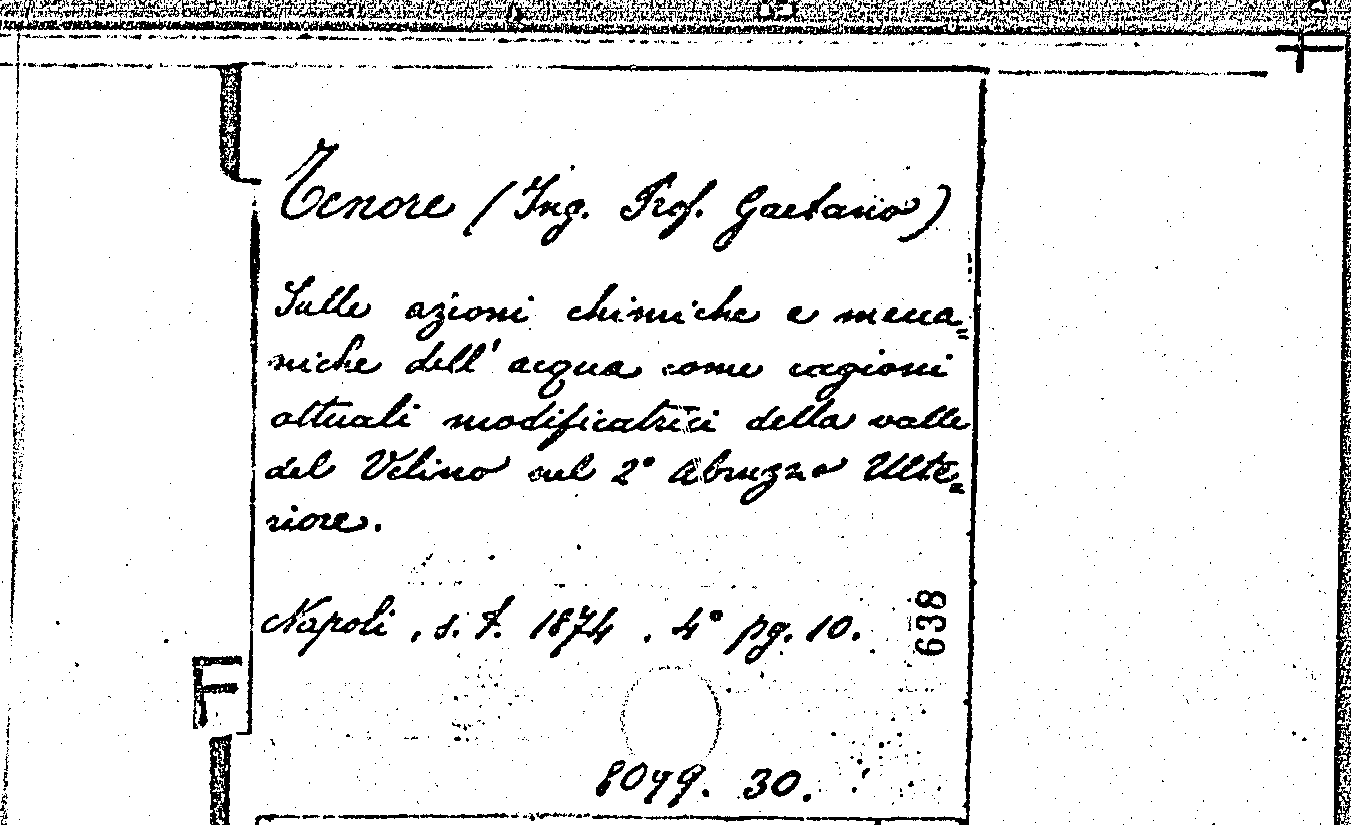 Tenore (Ing. Prof. Gaetano)
Sulle azioni chimiche e mecca=
niche dell' acqua come cagioni
attuali modificatrici della valle
del Velino nel 2° Abruzzo Ulte=
riore.
Napoli, s. t. 1874. 4° pg. 10.
638
F
8099. 30.